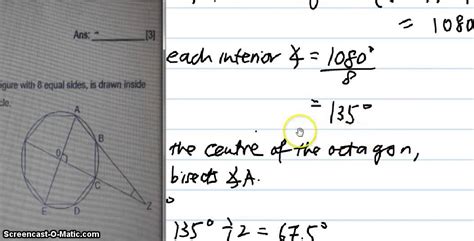 Ans: [3]
igure with 8 equal sides, is drawn inside
cle.
A
B
O
C
E
D
Z
= 1080
each interior ∡ = 1080°
8
= 135°
the centre of the octagon,
bisects ∡A.
135° ÷ 2 = 67.5°
Screencast-O-Matic.com